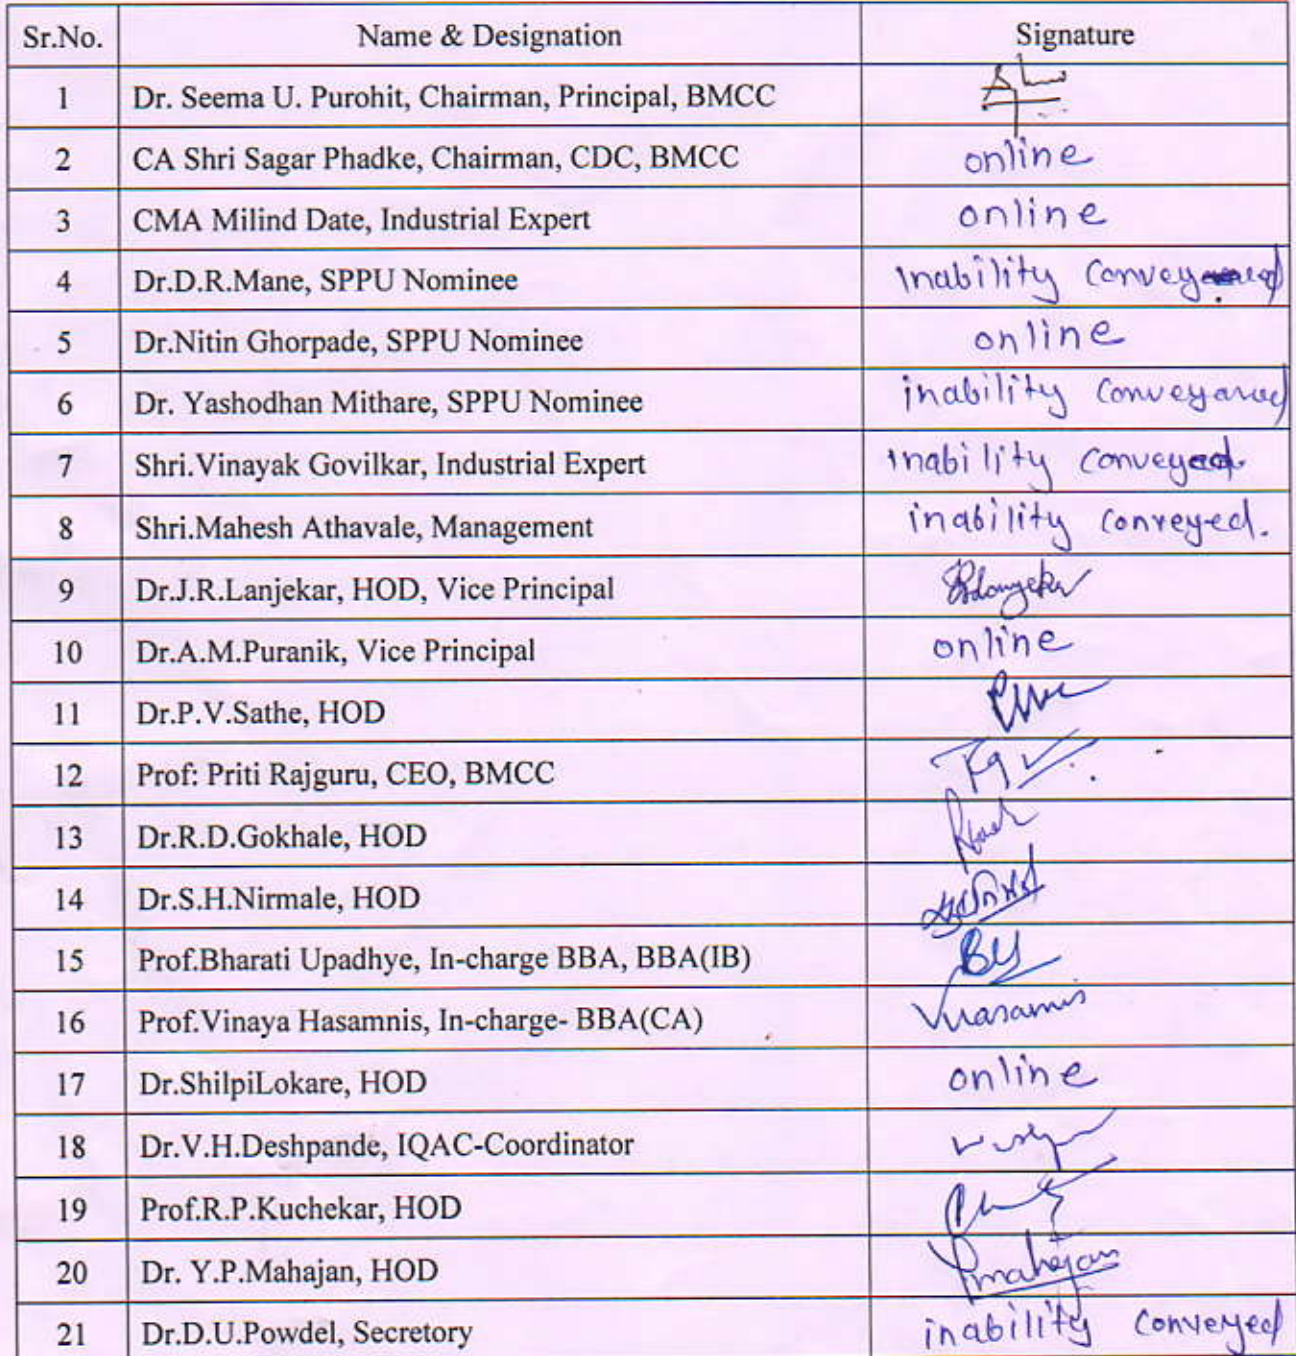 Sr.No. Name & Designation Signature
1 Dr. Seema U. Purohit, Chairman, Principal, BMCC
2 CA Shri Sagar Phadke, Chairman, CDC, BMCC online
3 CMA Milind Date, Industrial Expert online
4 Dr.D.R.Mane, SPPU Nominee inability
5 Dr.Nitin Ghorpade, SPPU Nominee online
6 Dr. Yashodhan Mithare, SPPU Nominee inability
7 Shri.Vinayak Govilkar, Industrial Expert inability conveyed.
8 Shri.Mahesh Athavale, Management inability conveyed.
9 Dr.J.R.Lanjekar, HOD, Vice Principal
10 Dr.A.M.Puranik, Vice Principal online
11 Dr.P.V.Sathe, HOD
12 Prof: Priti Rajguru, CEO, BMCC
13 Dr.R.D.Gokhale, HOD
14 Dr.S.H.Nirmale, HOD
15 Prof.Bharati Upadhye, In-charge BBA, BBA(IB) BU
16 Prof.Vinaya Hasamnis, In-charge- BBA(CA)
17 Dr.ShilpiLokare, HOD online
18 Dr.V.H.Deshpande, IQAC-Coordinator
19 Prof.R.P.Kuchekar, HOD
20 Dr. Y.P.Mahajan, HOD Ymahajan
21 Dr.D.U.Powdel, Secretory inability conveyed